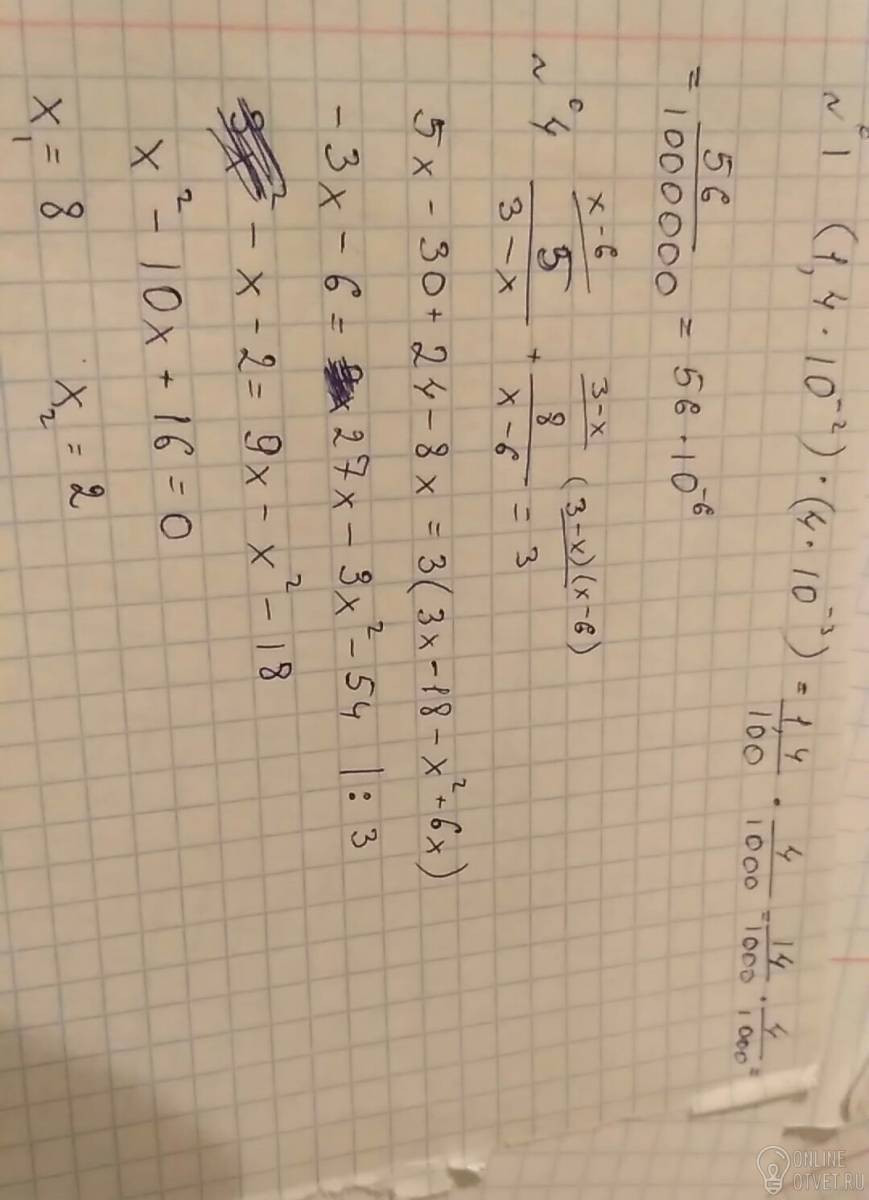 №1 (1,4·10⁻²)·(4·10⁻³) = 1,4/100 · 4/1000 = 14/1000 · 4/1000 =
= 56/1000000 = 56·10⁻⁶
x-6 3-x (3-x)(x-6)
№4 5/(3-x) + 8/(x-6) = 3
5x - 30 + 24 - 8x = 3(3x - 18 - x² + 6x)
-3x - 6 = 27x - 3x² - 54 |:3
-x - 2 = 9x - x² - 18
x² - 10x + 16 = 0
x₁ = 8 x₂ = 2
ONLINE
OTVET.RU